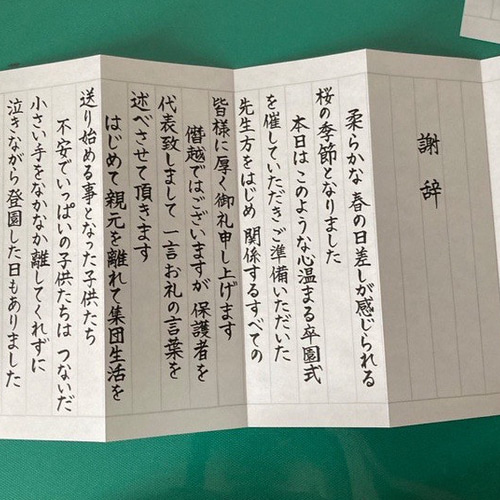 謝辞
柔らかな 春の日差しが感じられる
桜の季節となりました
本日は このような心温まる卒園式
を催していただきご準備いただいた
先生方をはじめ 関係するすべての
皆様に厚く御礼申し上げます
僭越ではございますが 保護者を
代表致しまして 一言お礼の言葉を
述べさせて頂きます
はじめて 親元を離れて集団生活を
送り始める事となった子供たち
不安でいっぱいの子供たちは つないだ
小さい手をなかなか離してくれずに
泣きながら 登園した日もありました